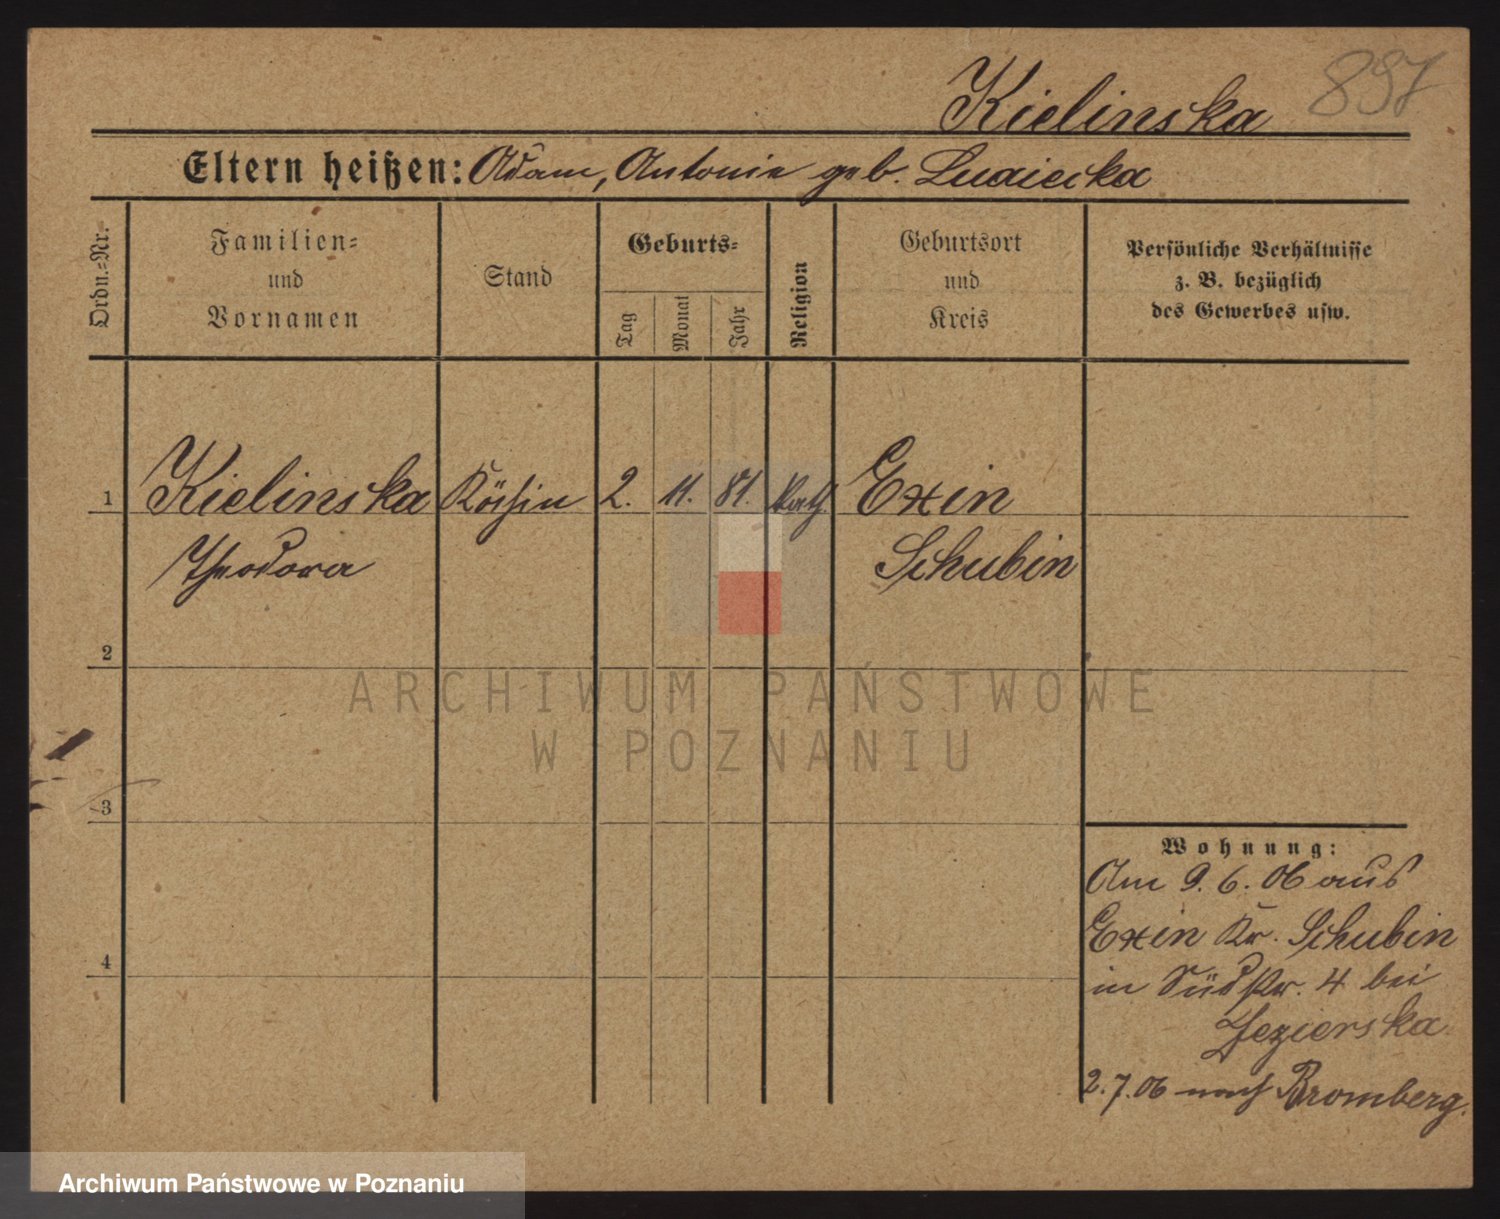 Kielinska 897
Eltern heißen: Adam, Antonie geb.
Ordn.-Nr.
Familien-
und
Vornamen
Stand
Geburts-
Tag
Monat
Jahr
Religion
Geburtsort
und
Kreis
Persönliche Verhältnisse
z. B. bezüglich
des Gewerbes usw.
1 Kielinska Köchin 2. 11. 81. Kath. Exin
Theodora Schubin
2
3
4
ARCHIWUM PAŃSTWOWE
W POZNANIU
Wohnung:
Am 9. 6. 06 aus
Exin Kr. Schubin
in Südstr. 4 bei
Jezierska.
2. 7. 06 nach Bromberg.
Archiwum Państwowe w Poznaniu